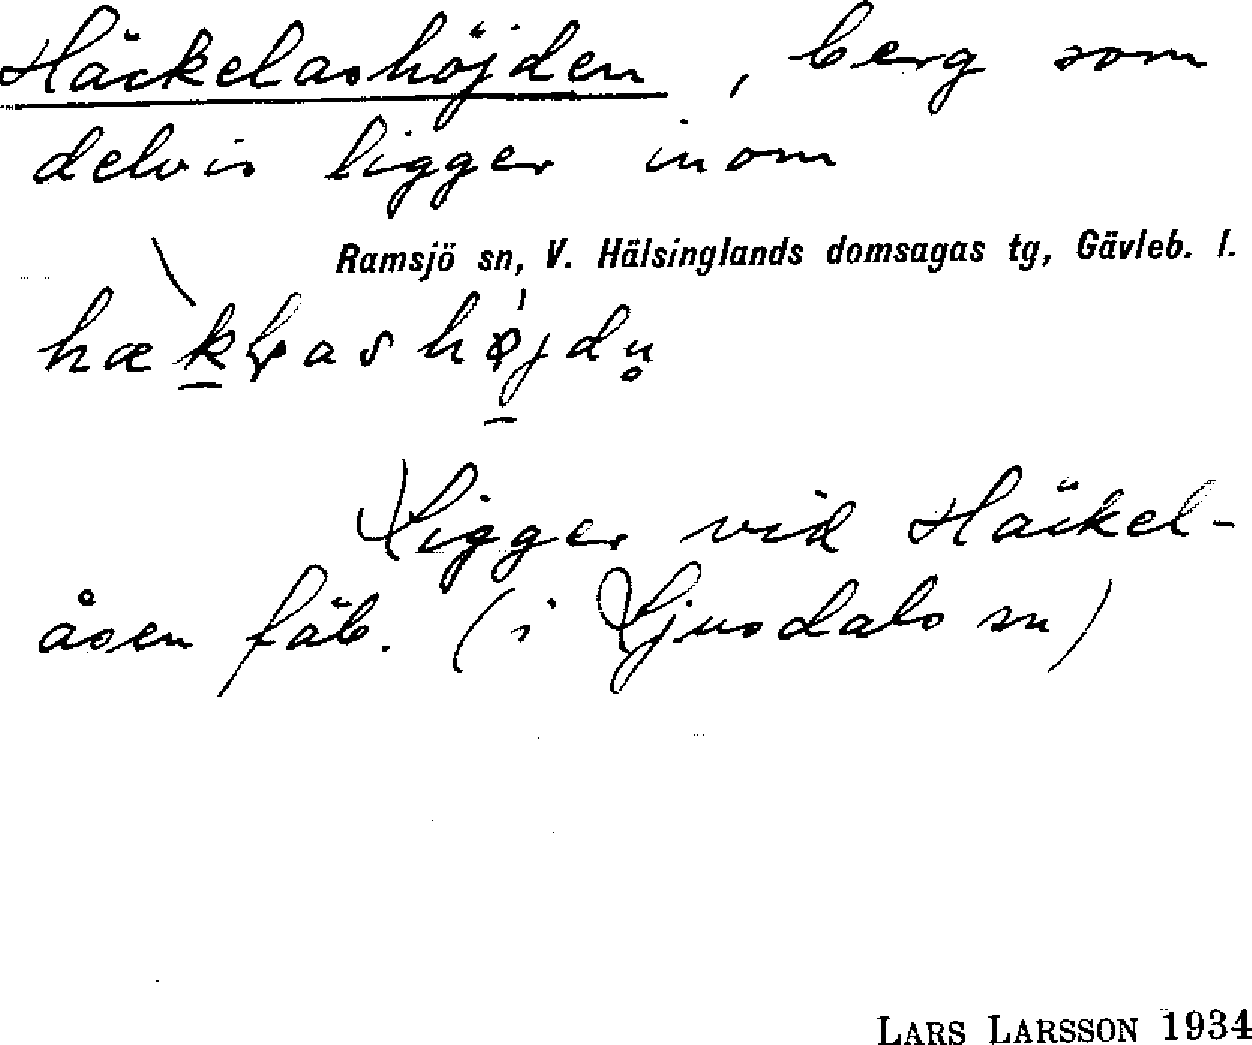 Häckelashöjden, berg som
delvis ligger inom
Ramsjö sn, V. Hälsinglands domsagas tg, Gävleb. l.
Ligger vid Häckel-
åsen fäb. (i Ljusdals sn)
LARS LARSSON 1934